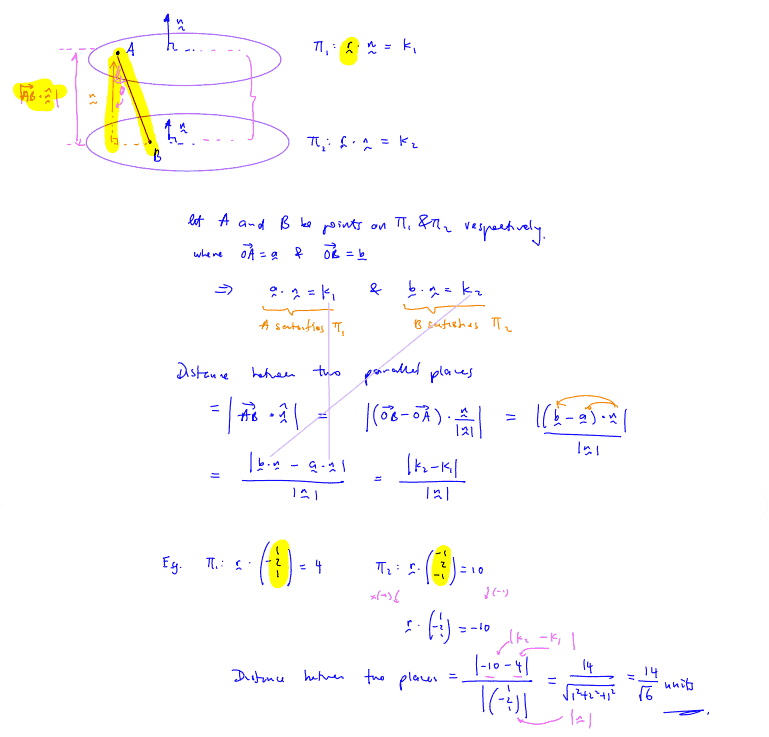 n
A
Π₁: r · n = k₁
|AB · n̂|
n
θ
n
B
Π₂: r · n = k₂
let A and B be points on Π₁ & Π₂ respectively.
where OA = a & OB = b
⇒ a · n = k₁ & b · n = k₂
A satisfies Π₁ B satisfies Π₂
Distance between two parallel planes
= |AB · n̂| = |(OB − OA) · n/|n|| = |(b − a) · n|/|n|
= |b · n − a · n|/|n| = |k₂ − k₁|/|n|
Eg. Π₁: r · (1 −2 1) = 4 Π₂: r · (−1 2 −1) = 10
×(−1) ×(−1)
r · (1 −2 1) = −10
|k₂ − k₁|
Distance between two planes = |−10 − 4|/|(1 −2 1)| = 14/√(1²+2²+1²) = 14/√6 units
|n|